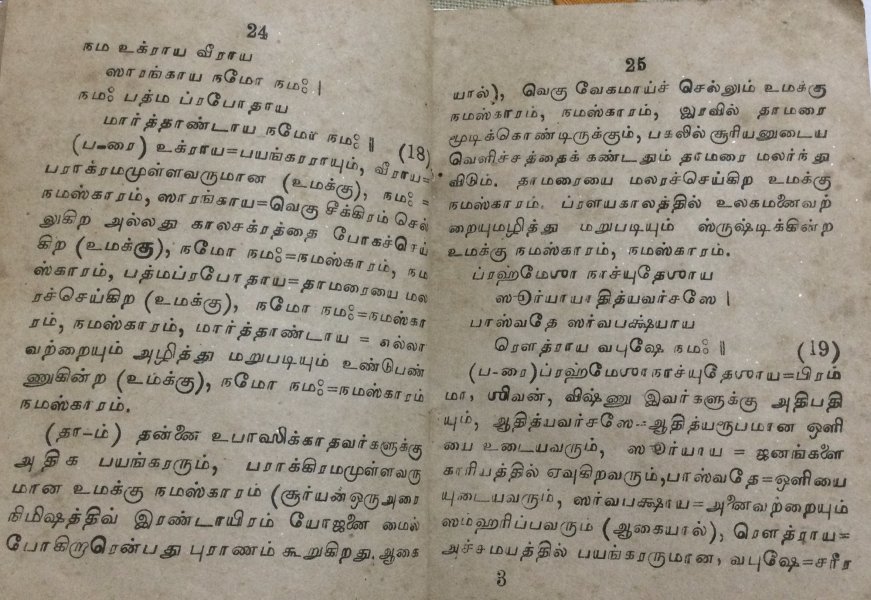 24
நம உக்ராய வீராய
ஸாரங்காய நமோ நமஃ |
நமஃ பத்ம ப்ரபோதாய
மார்த்தாண்டாய நமோ நமஃ || (18)
(ப-ரை) உக்ராய=பயங்கரராயும், வீராய=
பராக்ரமமுள்ளவருமான (உமக்கு), நமஃ =
நமஸ்காரம், ஸாரங்காய=வெகு சீக்கிரம் செல்
லுகிற அல்லது காலசக்ரத்தை போகச்செய்
கிற (உமக்கு), நமோ நமஃ=நமஸ்காரம், நம
ஸ்காரம், பத்மப்ரபோதாய=தாமரையை மல
ரச்செய்கிற (உமக்கு), நமோ நமஃ=நமஸ்கா
ரம், நமஸ்காரம், மார்த்தாண்டாய = எல்லா
வற்றையும் அழித்து மறுபடியும் உண்டுபண்
ணுகின்ற (உம்க்கு), நமோ நமஃ=நமஸ்காரம்
நமஸ்காரம்.
(தா-ம்) தன்னை உபாஸிக்காதவர்களுக்கு
அதிக பயங்கரரும், பராக்கிரமமுள்ளவரு
மான உமக்கு நமஸ்காரம் (சூர்யன் ஒரு அரை
நிமிஷத்திவ் இரண்டாயிரம் யோஜனை மைல்
போகிறாரென்பது புராணம் கூறுகிறது. ஆகை
25
யால்), வெகு வேகமாய்ச் செல்லும் உமக்கு
நமஸ்காரம், நமஸ்காரம், இரவில் தாமரை
மூடிக்கொண்டிருக்கும், பகலில் சூரியனுடைய
வெளிச்சத்தைக் கண்டதும் தாமரை மலர்ந்து
விடும். தாமரையை மலரச்செய்கிற உமக்கு
நமஸ்காரம். ப்ரளயகாலத்தில் உலகமனைவற்
றையுமழித்து மறுபடியும் ஸ்ருஷ்டிக்கின்ற
உமக்கு நமஸ்காரம், நமஸ்காரம்.
ப்ரஹ்மேஶா நாச்யுதேஶாய
ஸூர்யாயாதித்யவர்சஸே |
பாஸ்வதே ஸர்வபக்ஷ்யாய
ரௌத்ராய வபுஷே நமஃ || (19)
(ப-ரை)ப்ரஹ்மேஶாநாச்யுதேஶாய=பிரம்
மா, ஶிவன், விஷ்ணு இவர்களுக்கு அதிபதி
யும், ஆதித்யவர்சஸே=ஆதித்யரூபமான ஒளி
யை உடையவரும், ஸூர்யாய = ஜனங்களை
காரியத்தில் ஏவுகிறவரும்,பாஸ்வதே=ஒளியை
யுடையவரும், ஸர்வபக்ஷாய=அனைவற்றையும்
ஸம்ஹரிப்பவரும் (ஆகையால்), ரௌத்ராய=
அச்சமயத்தில் பயங்கரருமான, வபுஷே=சரீர
3